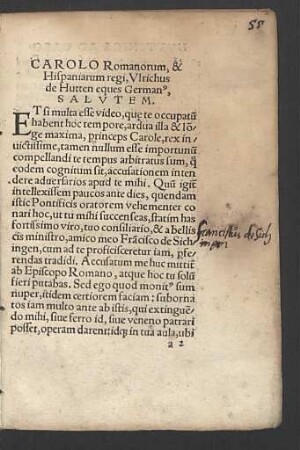 55
CAROLO Romanorum, &
Hispaniarum regi, Vlrichus
de Hutten eques Germanꝰ,
SALVTEM.
ET si multa esse video, que te occupatũ
habent hoc tempore, ardua illa & lõ-
ge maxima, princeps Carole, rex in
uictissime, tamen nullum esse importunũ
compellandi te tempus arbitratus sum, q̃
eodem cognitum sit, accusationem inten
dere aduersarios apud te mihi. Quũ igit̃
intellexissem paucos ante dies, quendam
istic Pontificis oratorem vehementer co
nari hoc, ut tu mihi succenseas, statim has
fortissimo viro, tuo consiliario, & a bellis
cis ministro, amico meo Frãcisco de Sich
ingen, cum ad te proficisceretur iam, pfe-
rendas tradidi. Accusatum me huc mittit̃
ab Episcopo Romano, atque hoc tu solũ
fieri putabas. Sed ego quod monitꝰ sum
nuper, itidem certiorem faciam: suborna
tos iam multo ante ab istis, qui extinguẽ
do mihi, siue ferro id, siue veneno patrari
posset, operam darent: idq; in tua aula, ubi
a 2
franciscus de Sich
ingen